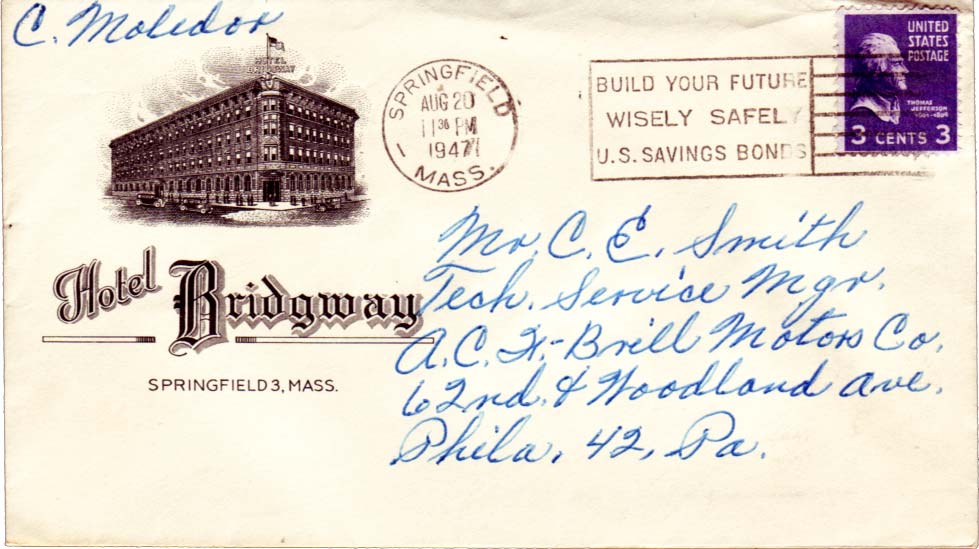 C. Moledor
HOTEL
BRIDGWAY
SPRINGFIELD
AUG 20
11 30 PM
1947
MASS.
BUILD YOUR FUTURE
WISELY SAFELY
U.S. SAVINGS BONDS
UNITED
STATES
POSTAGE
THOMAS
JEFFERSON
1801-1809
3 CENTS 3
Hotel Bridgway
SPRINGFIELD 3, MASS.
Mr. C. E. Smith
Tech. Service Mgr.
A.C.F.-Brill Motors Co.
62nd. & Woodland ave.
Phila, 42, Pa.